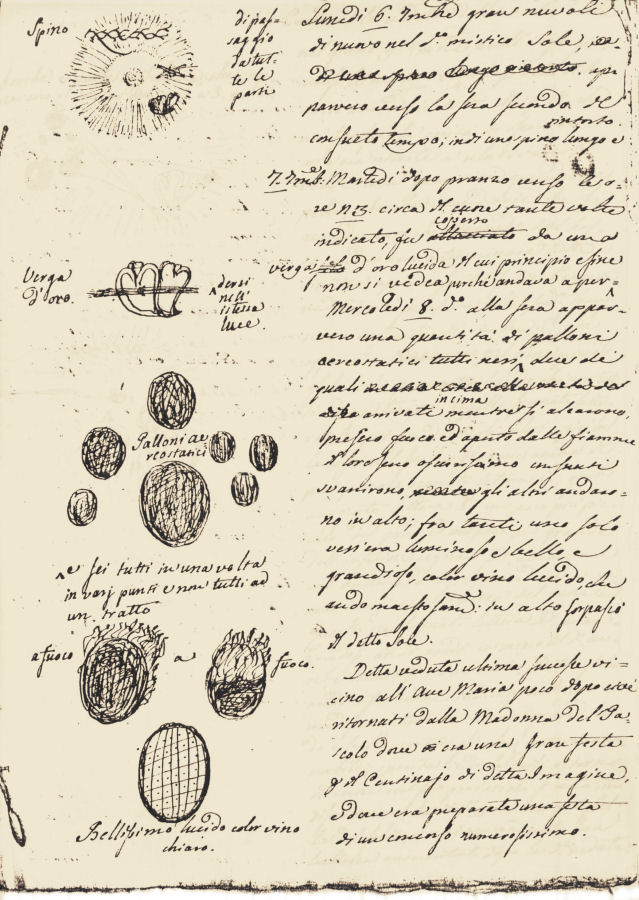 Spino
di pas-
saggio
da tut-
te le
parti
Lunedì 6. 7mbre gran nuvoli
di nuovo nel do. mistico Sole,
apparvero verso la sera secondo il
intorto
consueto tempo; indi uno spino lungo e
7. 7mbe. Martedì dopo pranzo verso le o-
re 23. circa il cune tante volte
coperto
indicato, fu attacciato da una
verga d'oro lucida il cui principio e fine
non si vedea, perchè andava a per-
Verga
d'oro.
dersi
nell'
istessa
luce.
Mercoledì 8. do. alla sera appar-
vero una quantità di palloni
aereostatici tutti neri, due de
quali
in cima
arrivati mentre si alzarono,
preser fuoco, ed aperto dalle fiamme
il loro seno oscurissimo consunti
svanirono, gli altri andaro-
no in alto; fra tanti uno solo
ven'era luminoso e bello, e
grandioso, color vino lucido che
andò maestosame: in alto sorpassò
il detto Sole.
Palloni ae
reostatici
e sei tutti in una volta
in varj punti e non tutti ad
un tratto
a fuoco
a
fuoco.
Detta veduta ultima successe vi-
cino all'Ave Maria poco dopo essere
ritornati dalla Madonna del Pa-
scolo dove era una gran festa
p il Centinajo di detta Imagine,
ed ove era preparata una festa
di un concorso numerosissimo.
Bellissimo lucido color vino
chiaro.